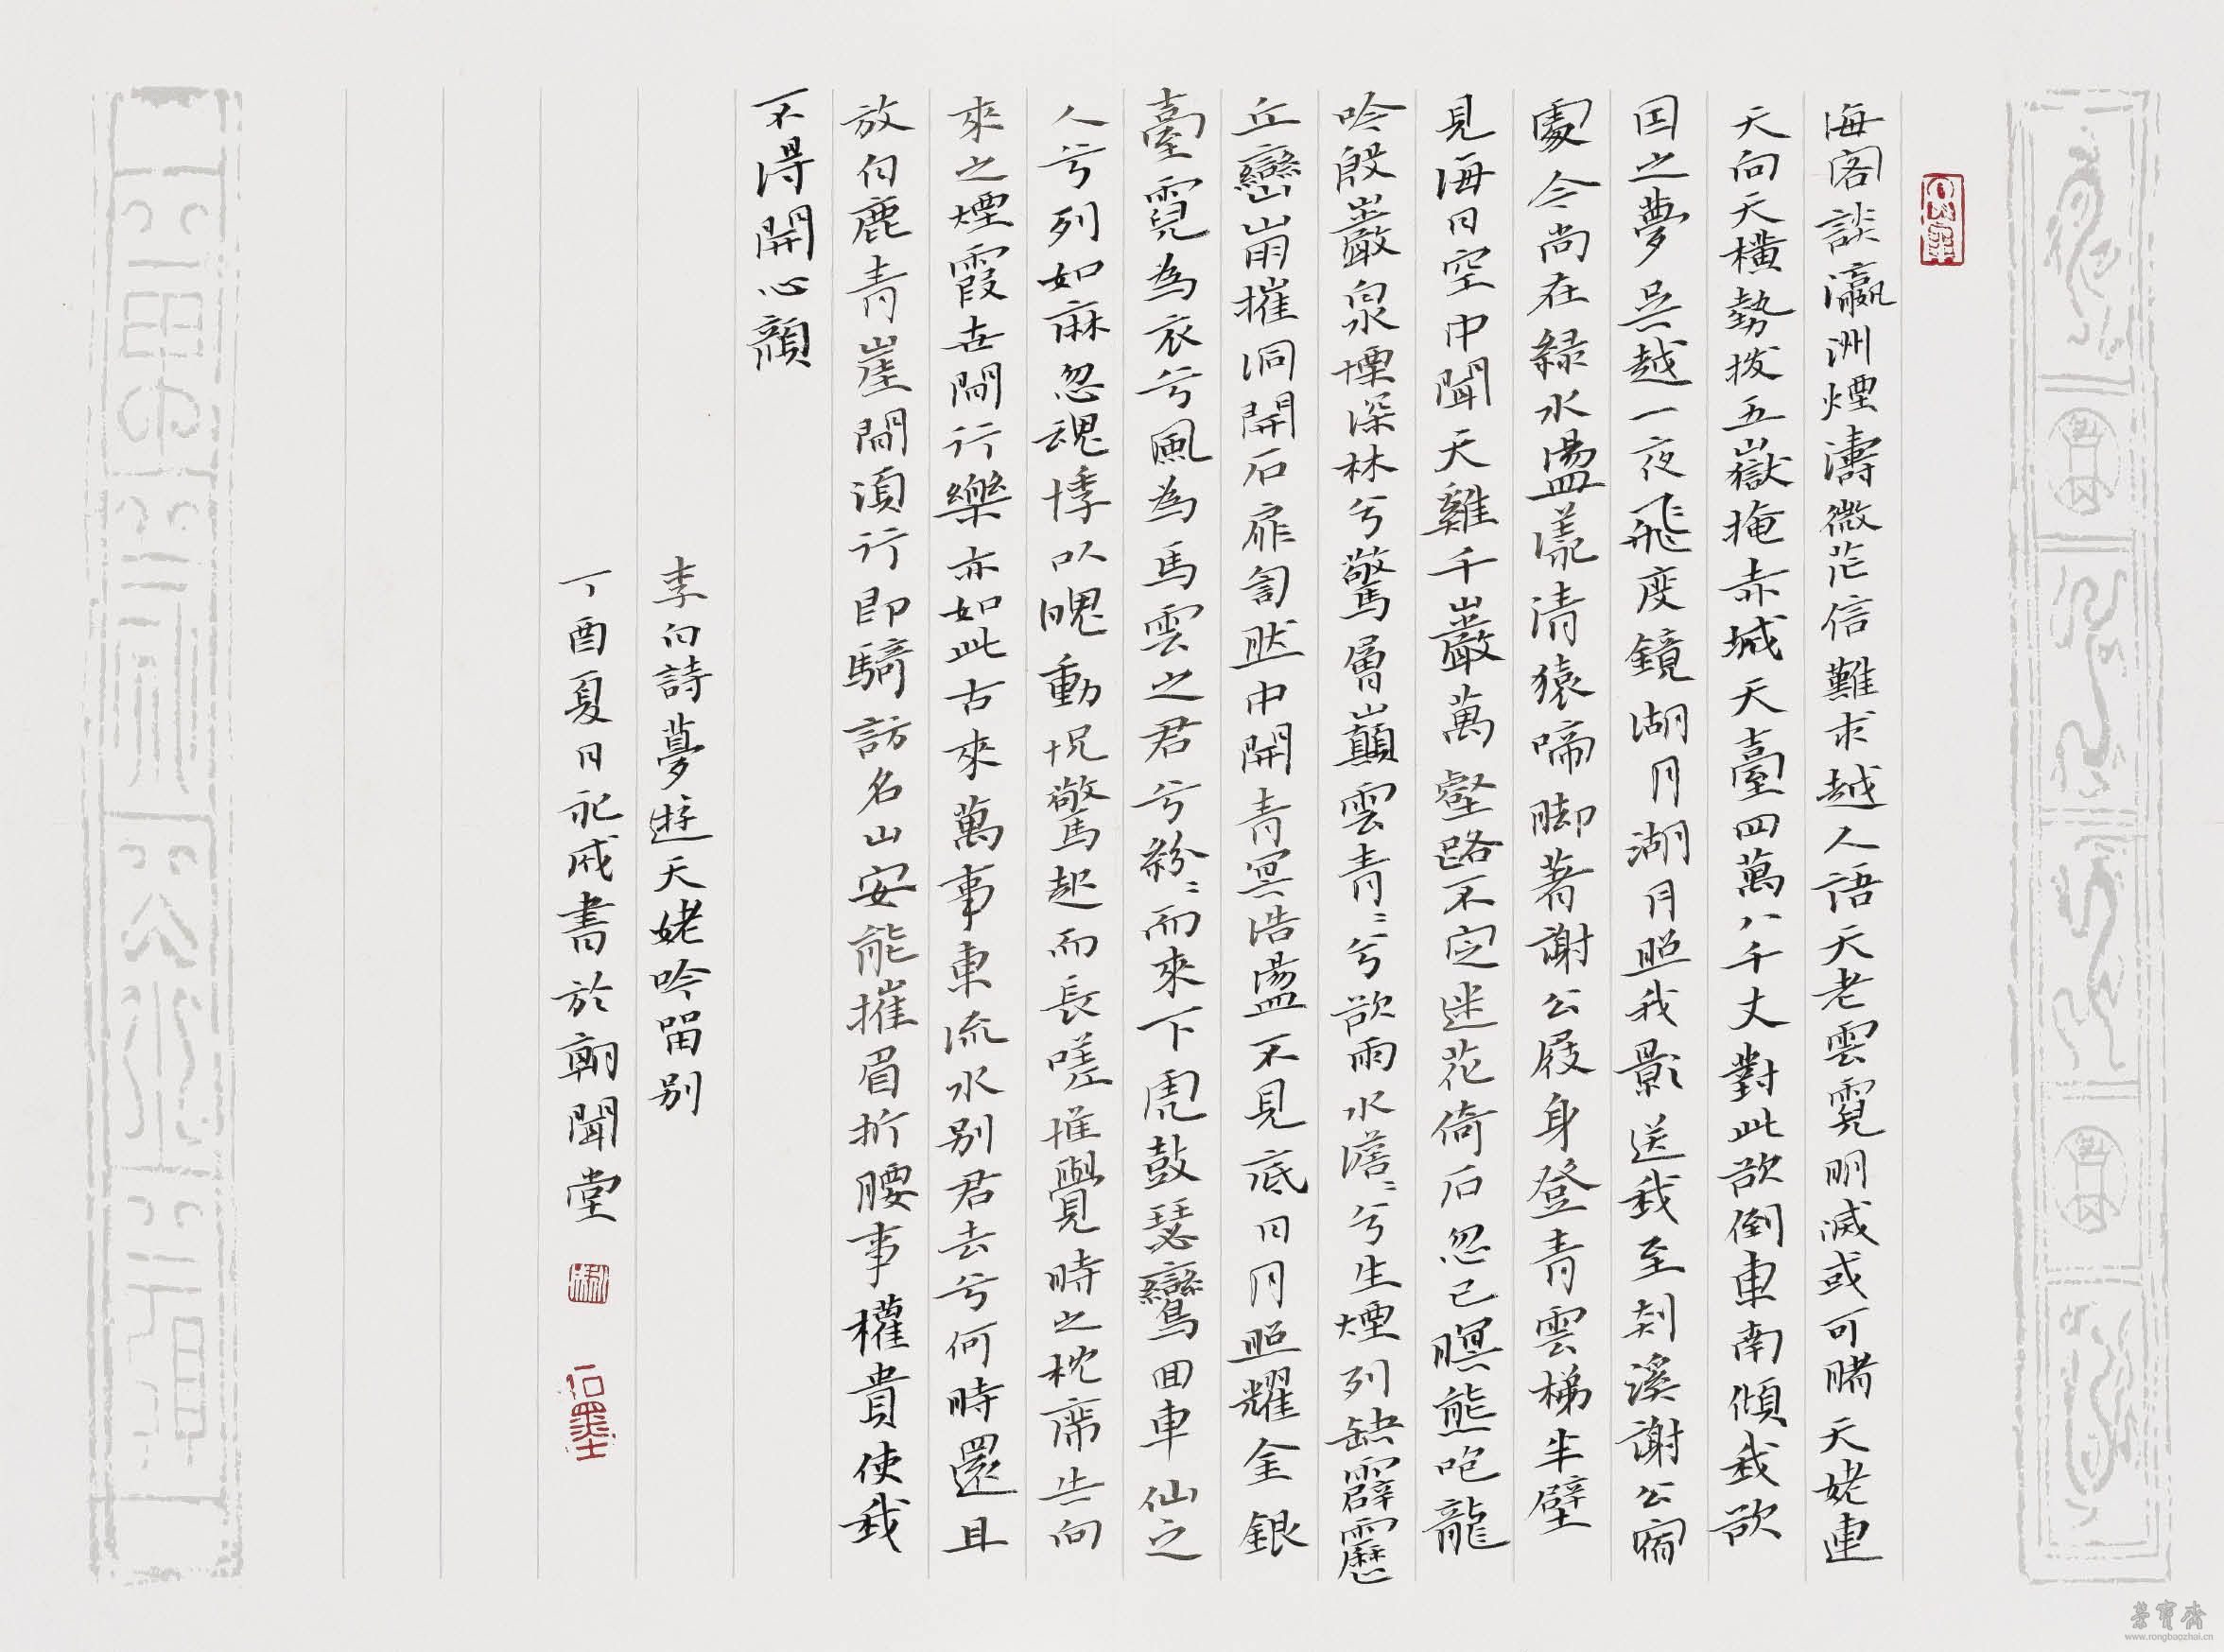 海客談瀛洲煙濤微茫信難求越人語天老雲霓明滅或可睹天姥連
天向天橫勢拔五嶽掩赤城天臺四萬八千丈對此欲倒東南傾我欲
因之夢吳越一夜飛度鏡湖月湖月照我影送我至剡溪謝公宿
處今尚在綠水盪漾清猿啼腳著謝公屐身登青雲梯半壁
見海日空中聞天雞千巖萬壑路不定迷花倚石忽已暝熊咆龍
吟殷巖泉慄深林兮驚層巔雲青〻兮欲雨水澹〻兮生煙列缺霹靂
丘巒崩摧洞開石扉訇然中開青冥浩盪不見底日月照耀金銀
臺霓為衣兮風為馬雲之君兮紛〻而來下虎鼓瑟鸞回車仙之
人兮列如麻忽魂悸以魄動怳驚起而長嗟惟覺時之枕席失向
來之煙霞世間行樂亦如此古來萬事東流水別君去兮何時還且
放白鹿青崖間須行即騎訪名山安能摧眉折腰事權貴使我
不得開心顏
李白詩夢遊天姥吟留別
丁酉夏日祀戌書於朝聞堂
石墨
榮寶齋
www.rongbaozhai.cn